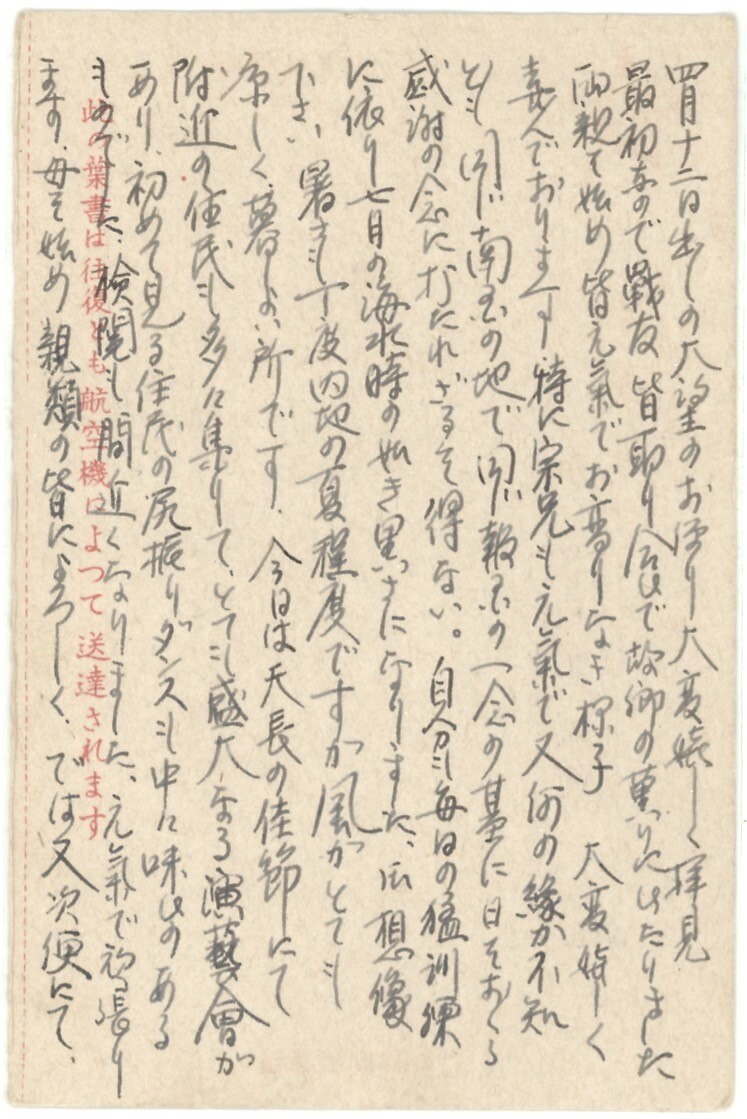 四月十二日出しの大望のお便り大変嬉しく拝見
最初なので戦友皆取り合ひで故郷の薫りにひたりました
両親を始め皆元氣でお変りなき様子 大変嬉しく
喜んでおります 特に宗兄も元氣で又何の縁か不知
とも同じ南国の地で同じ報国の一念の基に日をおくる
感謝の念に打たれざるを得ない。自分も毎日の猛訓練
に依り七月の海水時の如き黒さになりました、御想像
下さい 暑さも丁度内地の夏程度ですが風がとても
凉しく暮しよい所です、今日は天長の佳節にて
附近の住民も多々集りて、とても盛大なる演藝會が
あり、初めて見る住民の尻振りダンスも中々味ひのある
ものでした、検閲も間近くなりました、元氣で頑張り
ます、母を始め親類の皆によろしく、では又次便にて、
此の葉書は往復とも航空機によつて送達されます